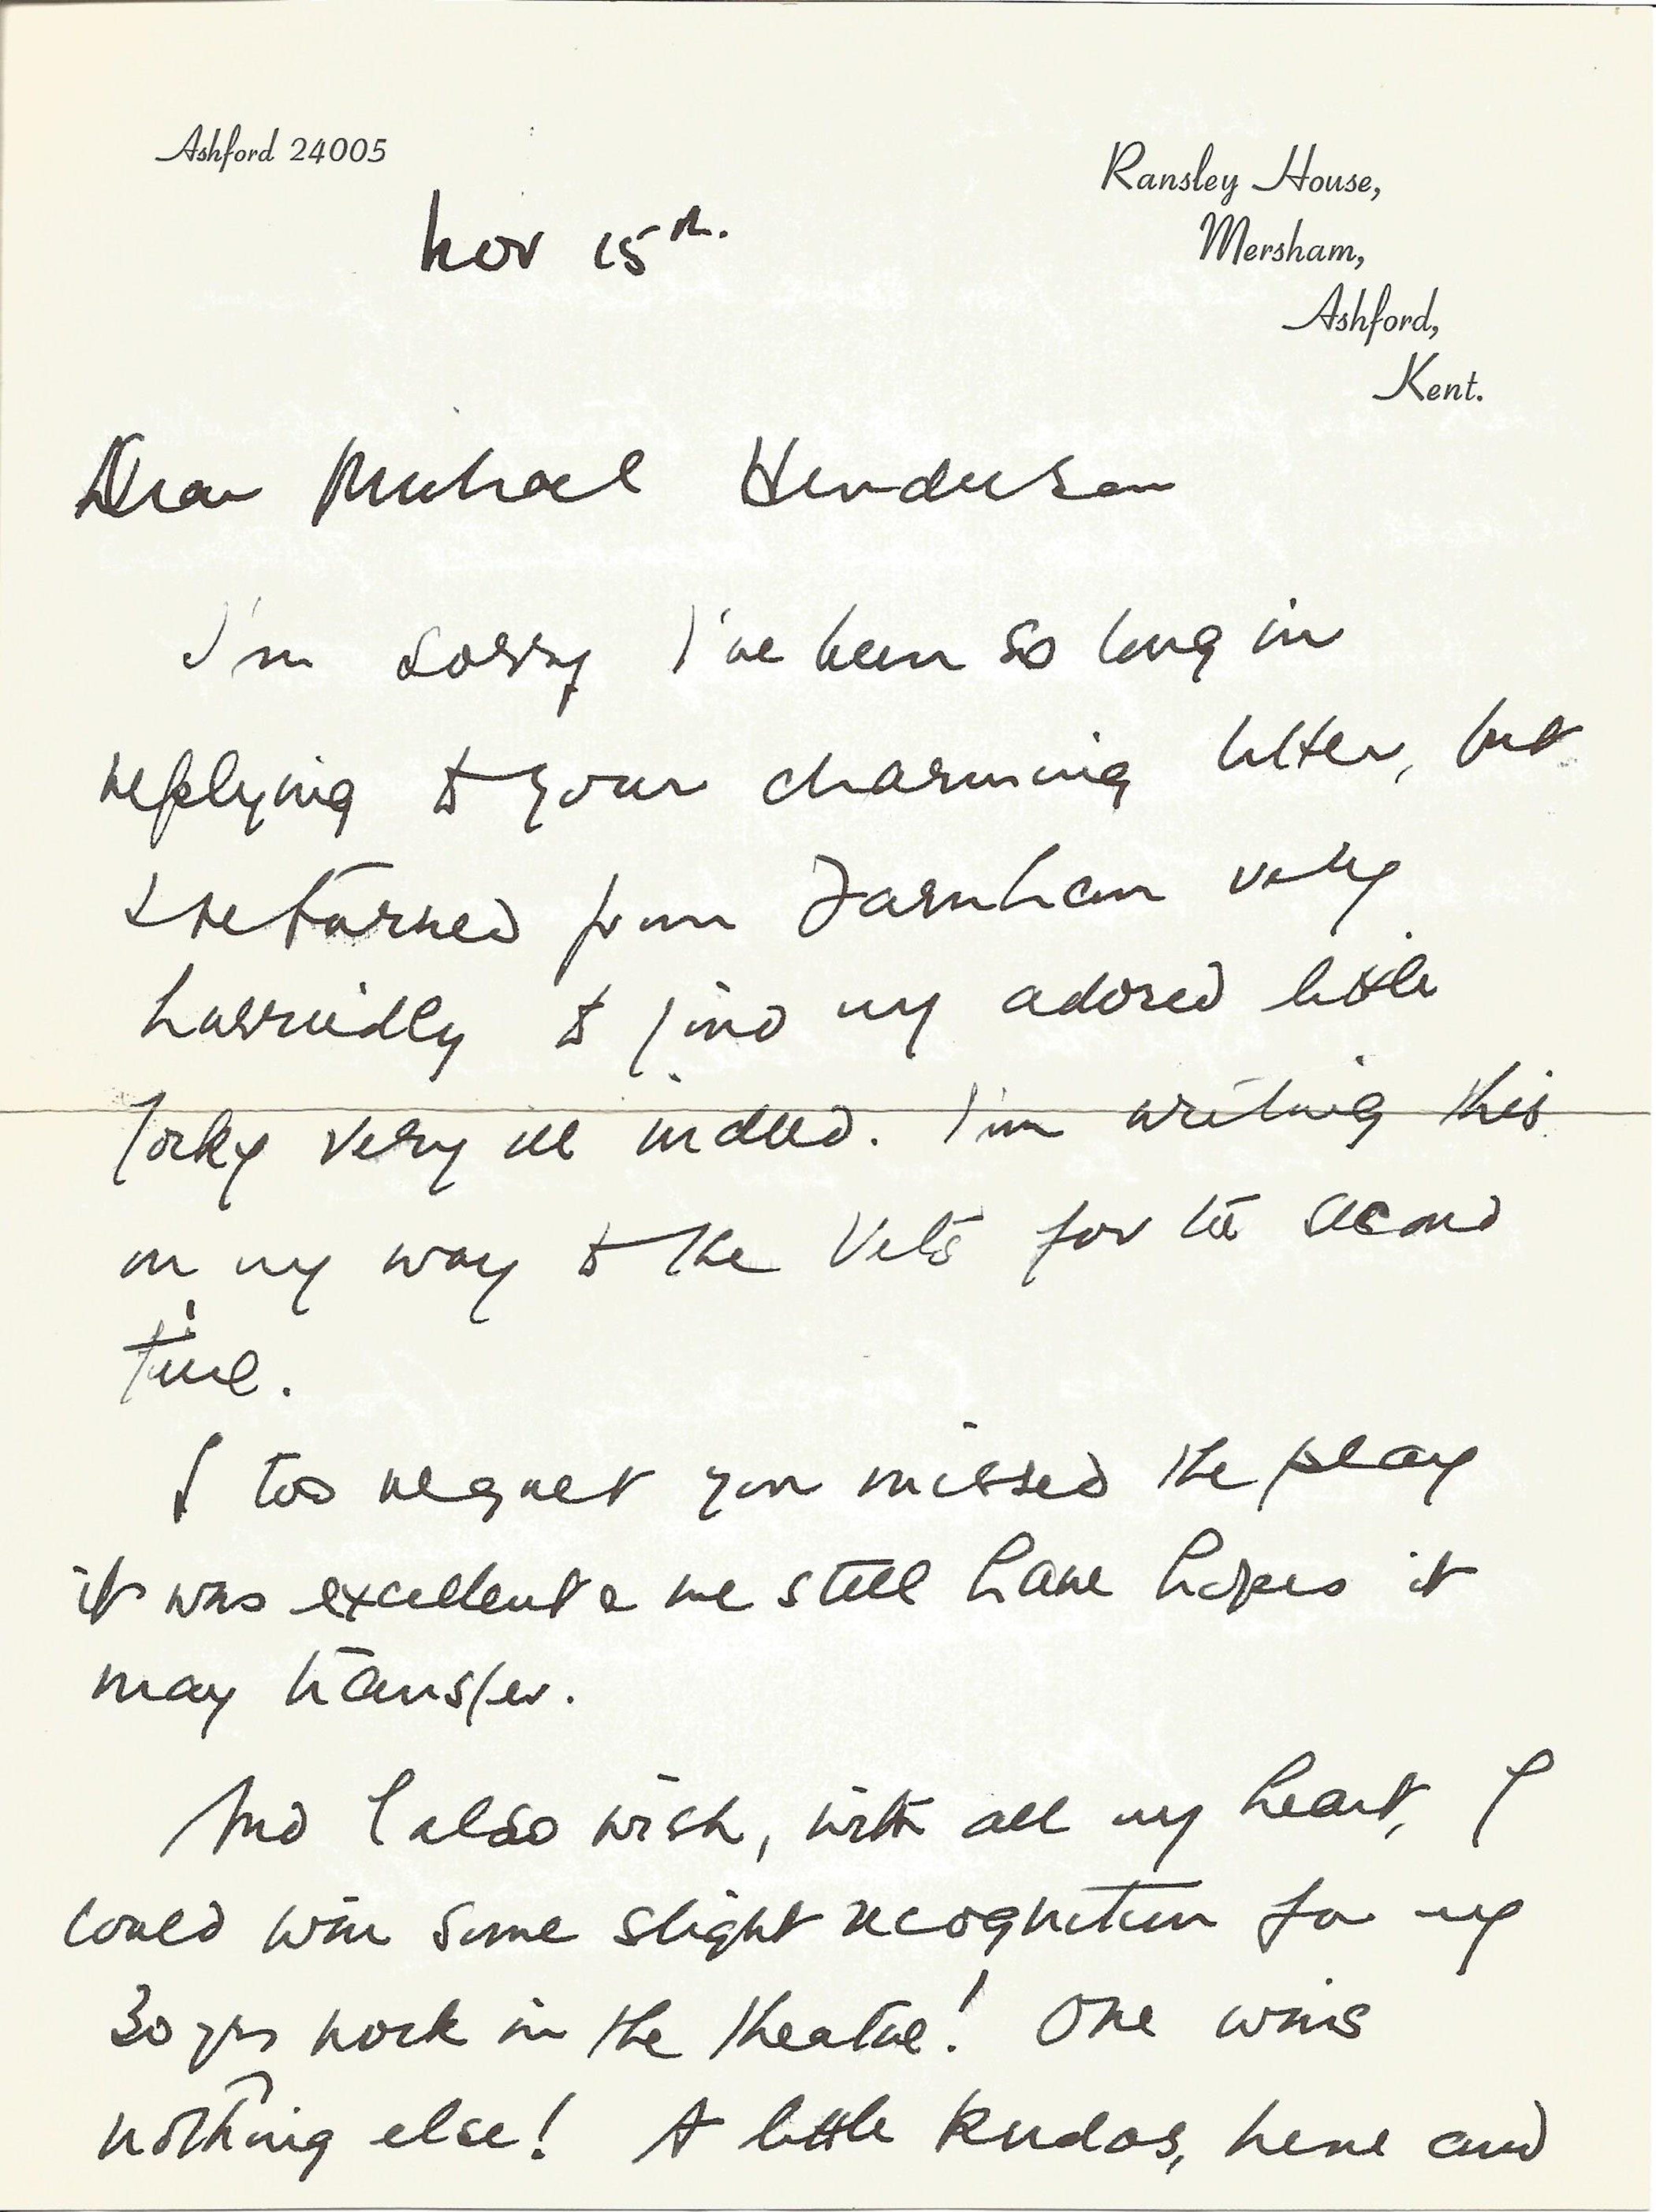 Ashford 24005
Ransley House,
Mersham,
Ashford,
Kent.
Nov 15th.
Dear Michael Henderson
I'm sorry I've been so long in
replying to your charming letter, but
I returned from Farnham very
hurriedly to find my adored little
Yorky very ill indeed. I'm writing this
on my way to the Vets for the second
time.
I too regret you missed the play
it was excellent & we still have hopes it
may transfer.
And I also wish, with all my heart, I
could win some slight recognition for my
30 yrs work in the theatre! One wins
nothing else! A little kudos, here and